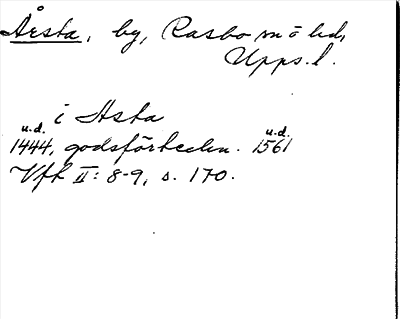 Årsta, by, Rasbo sn ö hd,
Upps. l.
i Asta
u.d. u.d.
1444, godsförteckn. 1561
Vfh II: 8-9, s. 170.